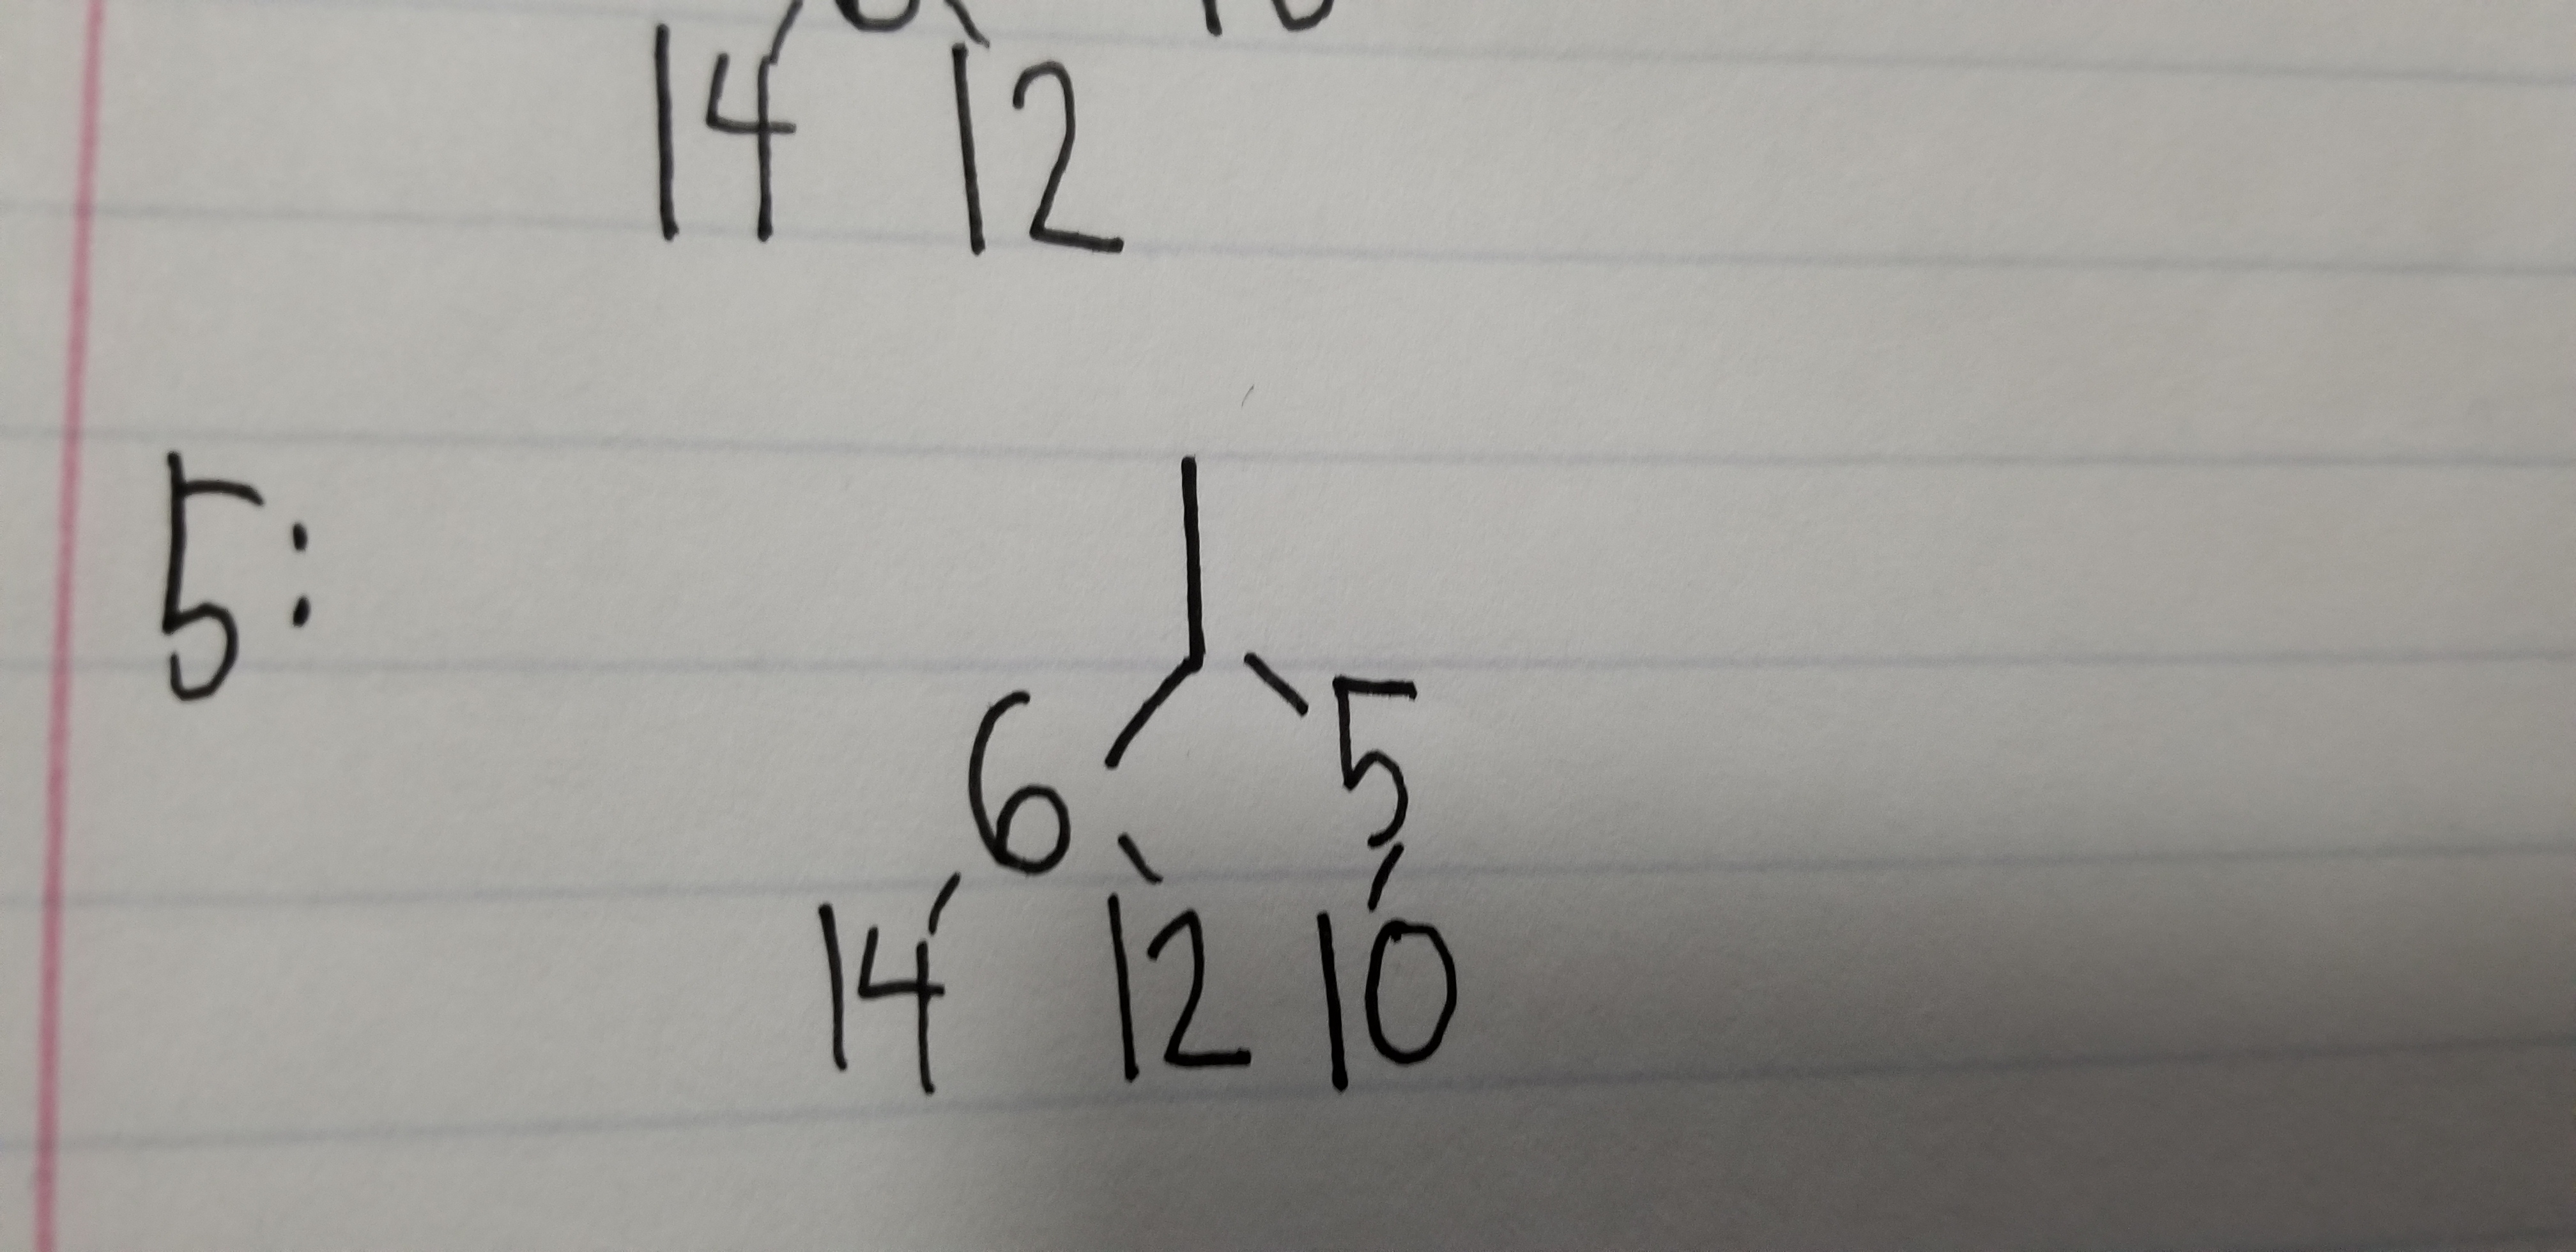 14 12
5:
1
6 5
14 12 10